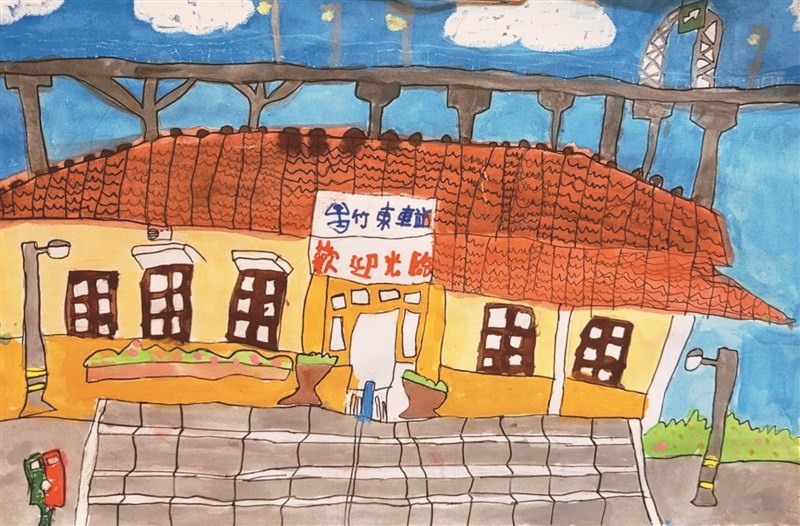 竹東車站
歡迎光臨